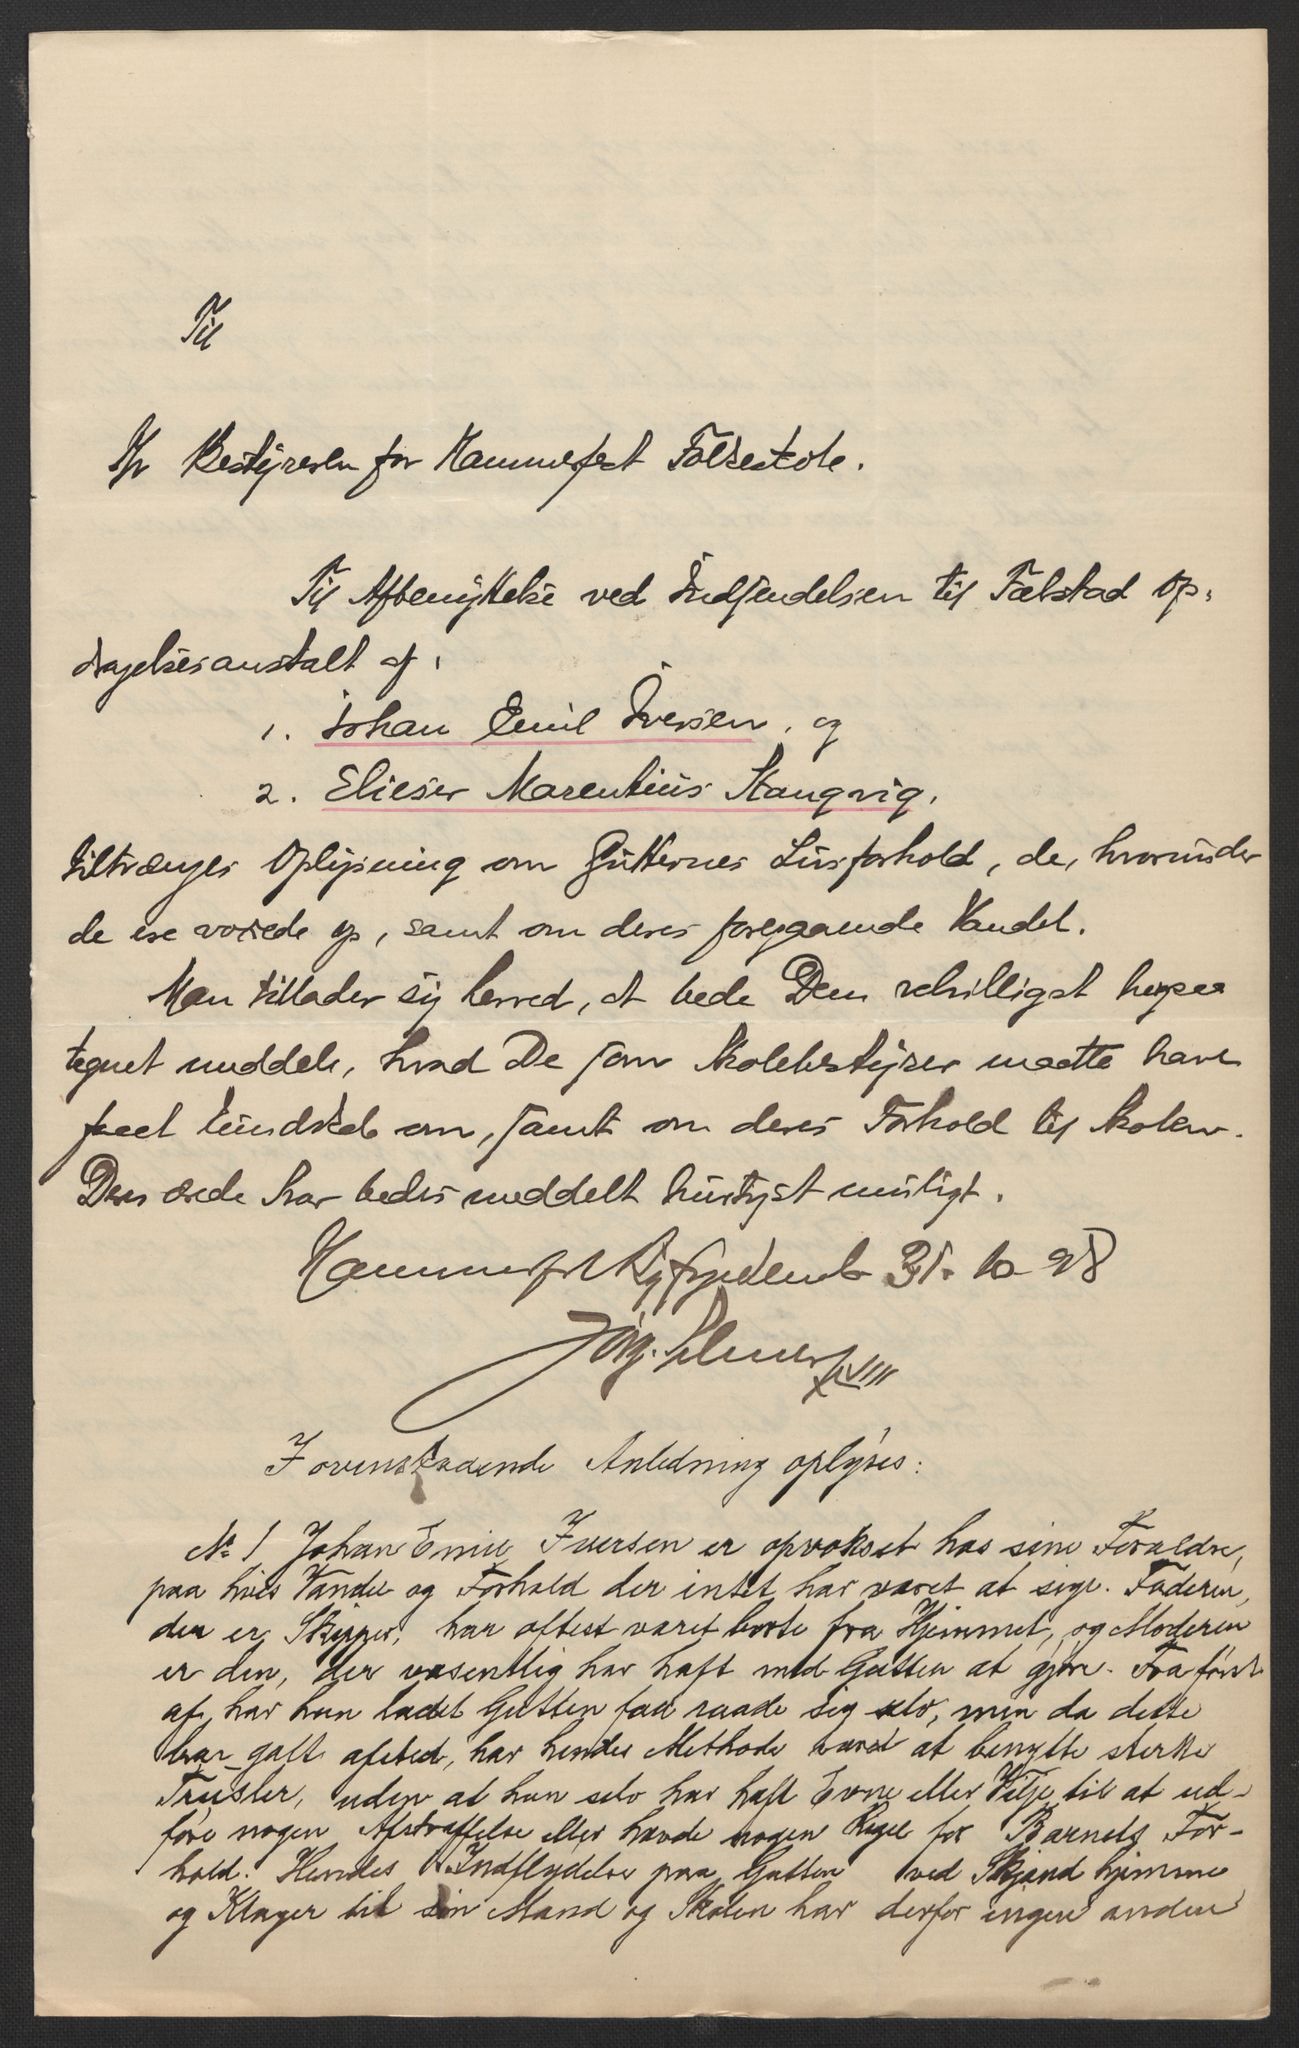 Til
Hr Bestyreren for Hammerfest Folkeskole.
Til Afbenyttelse ved Indsendelsen til Falstad Op-
dragelsesanstalt af:
1. Johan Emil Iversen, og
2. Elieser Marentius Stangvig,
tiltrænges Oplysning om Gutternes Livsforhold, de, hvorunder
de ere voxede op, samt om deres foregaaende Vandel.
Man tillader sig herved, at bede Dem velvilligst herpaa
tegnet meddele, hvad De som Skolebestyrer maatte have
faaet Kundskab om, samt om deres Forhold til Skolen.
Deres ærede Svar bedes meddelt hurtigst muligt.
Hammerfest Byfogedemb 31. 10 98
Jørg.
I ovenstaaende Anledning oplyses:
No 1 Johan Emil Iversen er opvokset hos sine Forældre,
paa hvis Vandel og Forhold der intet har været at sige. Faderen,
der er Skipper, har oftest været borte fra Hjemmet, og Moderen
er den, der væsentlig har haft med Gutten at gjøre. Fra først
af har hun ladet Gutten faa raade sig selv, men da dette
har galt afsted, har hendes Methode været at benytte sterke
Trusler, uden at hun selv har haft Evne eller Vilje til at ud-
føre nogen Afstraffelse eller hævde nogen Regel for Barnets For-
hold. Hendes Indflydelse paa Gutten ved Skjænd hjemme
og Klager til sin Mand og Skolen har derfor ingen anden